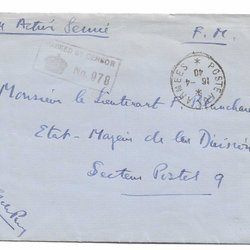 n Active Service F. M.
PASSED BY CENSOR
No. 978
POSTE AUX ARMEES
16-4
40
Monsieur le Lieutenant
Etat-Major de la Division
Secteur Postal 9